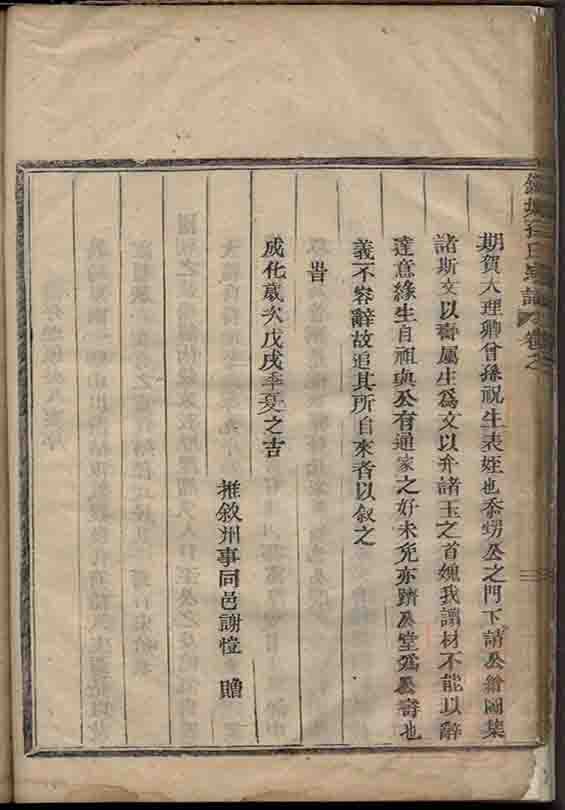 期賀大理卿曾孫祝生表姪也忝甥公之門下請公繪圖集
諸斯文以壽屬生爲文以弁諸玉之首媿我譾材不能以辭
達意緣生自祖與公有通家之好未免亦躋公堂爲公壽也
義不容辭故追其所自來者以叙之
旹
成化歲次戊戌季夏之吉
推叙州事同邑謝愷 贈
孫氏家譜 卷之